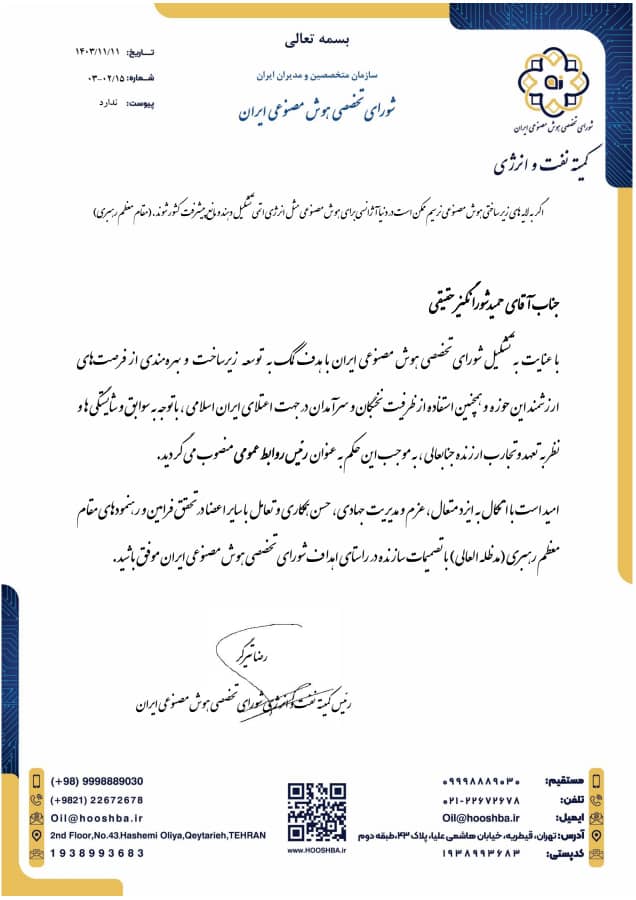 بسمه تعالی
سازمان متخصصین و مدیران ایران
شورای تخصصی هوش مصنوعی ایران
تاریخ: ۱۴۰۳/۱۱/۱۱
شماره: ۰۳-۰۲/۱۵
پیوست: ندارد
شورای تخصصی هوش مصنوعی ایران
کمیته نفت و انرژی
اگر به لایه های زیرساختی هوش مصنوعی نرسیم ممکن است در دنیا آژانسی برای هوش مصنوعی مثل انرژی اتمی تشکیل دهند و مانع پیشرفت کشور شوند. (مقام معظم رهبری)
جناب آقای حمید شورانگیز حقیقی
با عنایت به تشکیل شورای تخصصی هوش مصنوعی ایران با هدف کمک به توسعه زیرساخت و بهره مندی از فرصت های
ارزشمند این حوزه و همچنین استفاده از ظرفیت نخبگان و سرآمدان در جهت اعتلای ایران اسلامی ، با توجه به سوابق و شایستگی ها و
نظر به تعهد و تجارب ارزنده جنابعالی ، به موجب این حکم به عنوان رئیس روابط عمومی منصوب می گردید.
امید است با اتکال به ایزد متعال ، عزم و مدیریت جهادی ، حسن همکاری و تعامل با سایر اعضا در تحقق فرامین و رهنمودهای مقام
معظم رهبری (مدظله العالی) با تصمیمات سازنده در راستای اهداف شورای تخصصی هوش مصنوعی ایران موفق باشید.
رضا تیرگر
رئیس کمیته نفت و انرژی شورای تخصصی هوش مصنوعی ایران
مستقیم: ۰۹۹۹۸۸۸۹۰۳۰
تلفن: ۰۲۱-۲۲۶۷۲۶۷۸
ایمیل: Oil@hooshba.ir
آدرس: تهران، قیطریه، خیابان هاشمی علیا، پلاک ۴۳، طبقه دوم
کدپستی: ۱۹۳۸۹۹۳۶۸۳
www.HOOSHBA.ir
(+98) 9998889030
(+9821) 22672678
Oil@hooshba.ir
2nd Floor,No.43,Hashemi Oliya,Qeytarieh,TEHRAN
1938993683